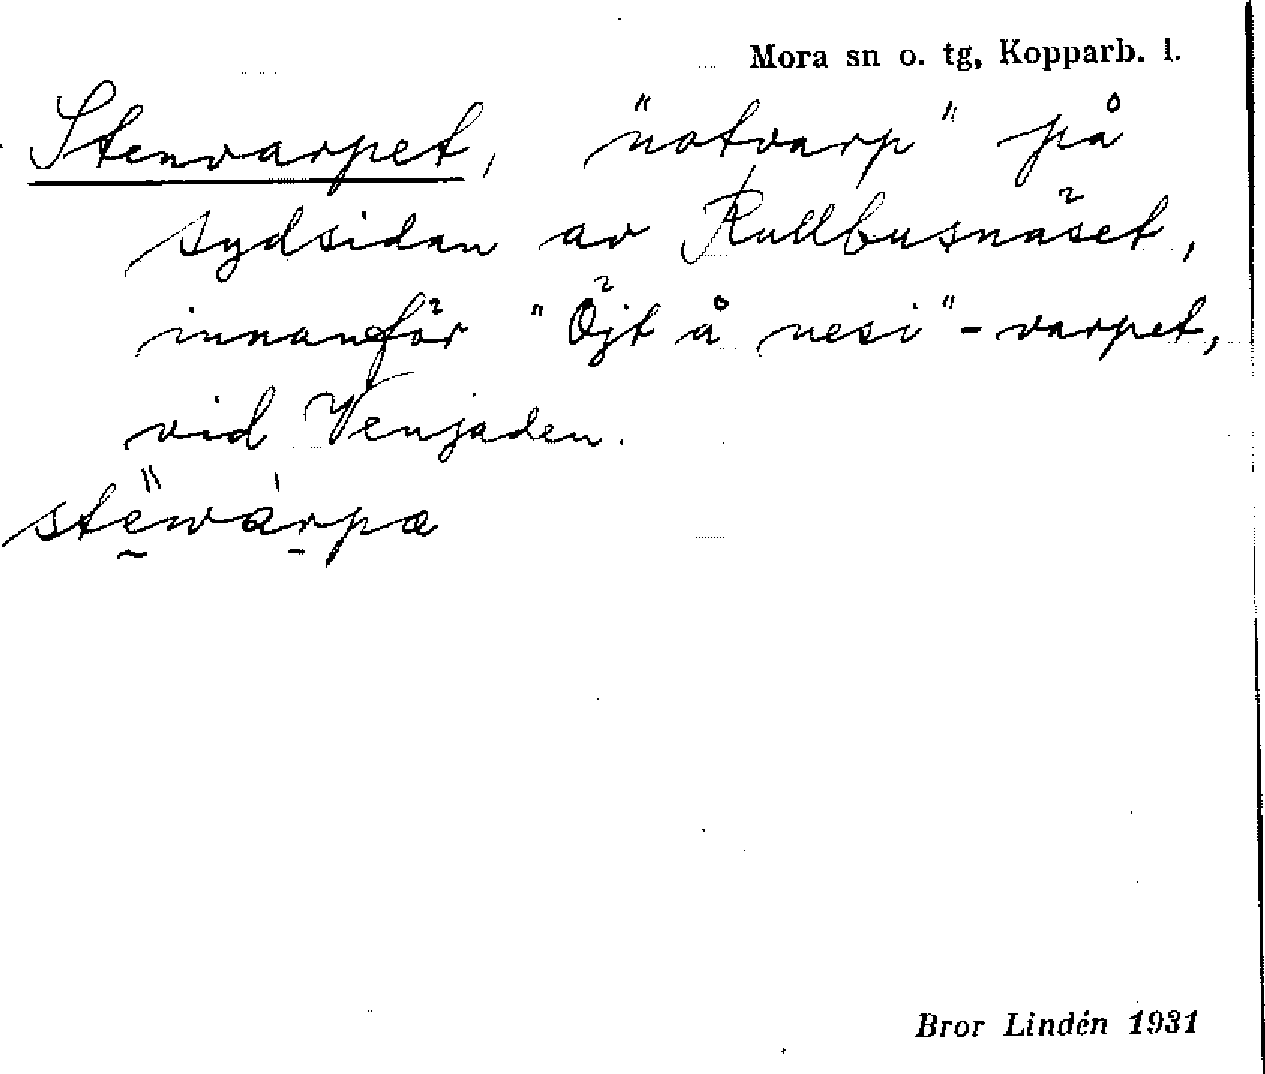 Mora sn o. tg, Kopparb. l.
Stenvarpet, "notvarp" på
sydsidan av Rullbusnäset,
innanför "Öjt å nesi"-varpet,
vid Venjaden.
stëwárpa
Bror Lindén 1931